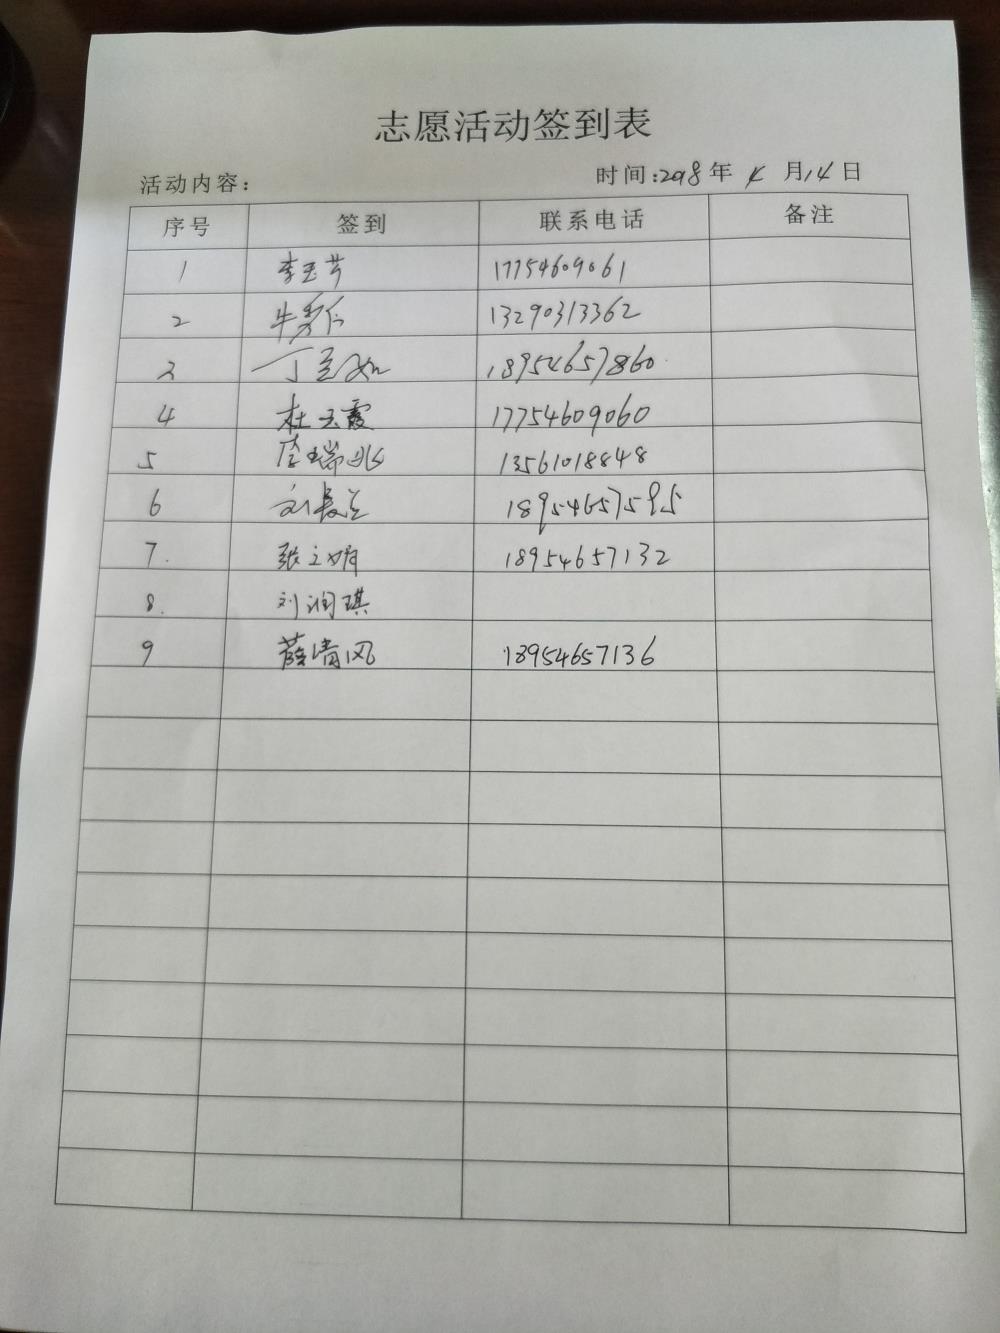 志愿活动签到表
活动内容: 时间:2018年 月14日
序号 签到 联系电话 备注
1 李玉芳 17754609061
2 牛秀 13290313362
3 丁 18954657860
4 杜玉霞 17754609060
5 李瑞 13561018848
6 刘长兰 18954657595
7. 张立娟 18954657132
8. 刘润琪
9 薛清风 18954657136